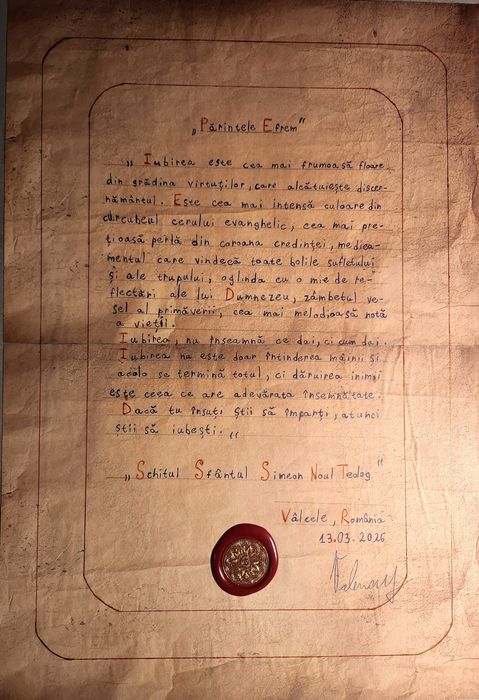 „Părintele Efrem”
„Iubirea este cea mai frumoasă floare
din grădina virtuților, care alcătuiește discer-
nământul. Este cea mai intensă culoare din
curcubeul cerului evanghelic, cea mai pre-
țioasă perlă din coroana credinței, medica-
mentul care vindecă toate bolile sufletului
și ale trupului, oglinda cu o mie de re-
flectări ale lui Dumnezeu, zâmbetul ve-
sel al primăverii, cea mai melodioasă notă
a vieții.
Iubirea, nu înseamnă ce dai, ci cum dai.
Iubirea nu este doar întinderea mâinii și
acolo se termină totul, ci dăruirea inimii
este ceea ce are adevărata însemnătate.
Dacă tu însuți știi să împarți, atunci
știi să iubești.„
„Schitul Sfântul Simeon Noul Teolog”
Vâlcele, România
13.03.2026